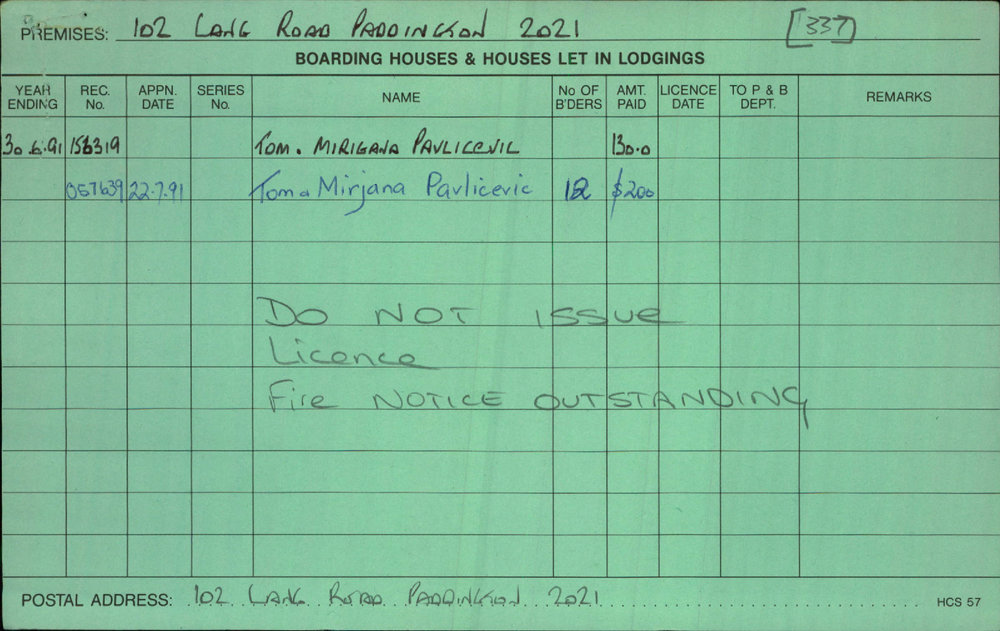 PREMISES: 102 LANG ROAD PADDINGTON 2021 [337]
BOARDING HOUSES & HOUSES LET IN LODGINGS
YEAR ENDING REC. No. APPN. DATE SERIES No. NAME No OF B'DERS AMT. PAID LICENCE DATE TO P & B DEPT. REMARKS
30.6.91 156319 TOM. MIRIGANA PAVLICEVIC 130.0
057639 22.7.91 Tom a Mirjana Pavlicevic 12 $200
DO NOT ISSUE
Licence
Fire NOTICE OUTSTANDING
POSTAL ADDRESS: 102 LANG ROAD PADDINGTON 2021 HCS 57